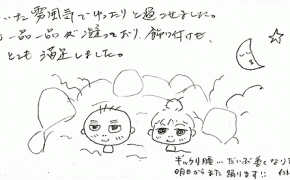 いた雰囲気でゆったりと過ごせました。
一品一品が凝っており、飾り付けも、
とても満足しました。
ギックリ腰…だいぶ善くなり
明日からまた踊ります!!